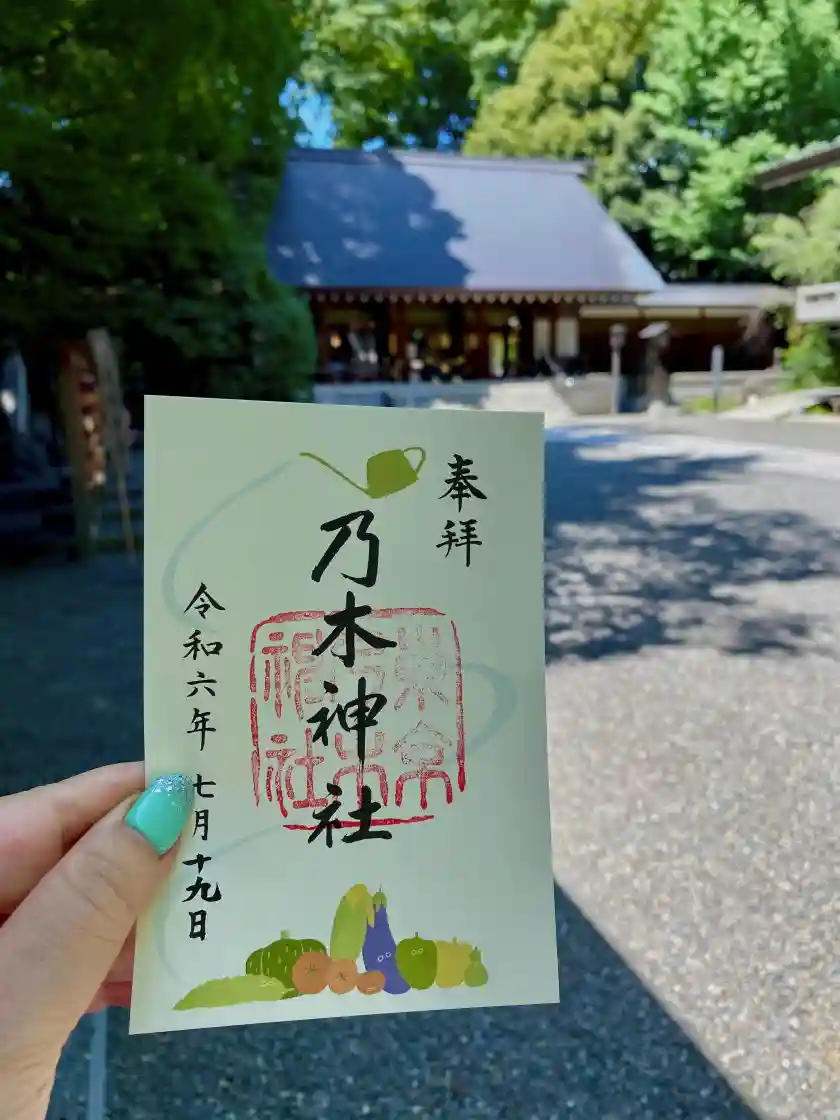 奉拝
乃木神社
東京
乃木
神社
令和六年 七月十九日